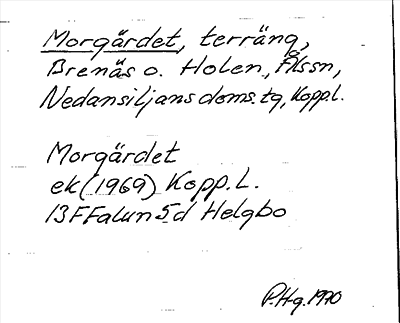 Morgärdet, terräng,
Brenäs o. Holen, Ålssn,
Nedansiljans doms. tg, Kopp.l.
Morgärdet
ek (1969) Kopp.L.
13F Falun 5d Helgbo
P.Hg. 1970